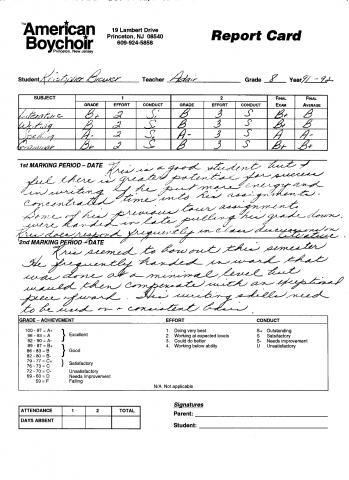 The American Boychoir
Princeton, New Jersey
19 Lambert Drive
Princeton, NJ 08540
609-924-5858
Report Card
Student Kristopher Brewer Teacher Adair Grade 8 Year 91-92
SUBJECT 1 2 FINAL EXAM FINAL AVERAGE
GRADE EFFORT CONDUCT GRADE EFFORT CONDUCT
Literature B+ 2 S B 3 S B+ B
Writing B 2 S B 3 S B B
Spelling A- 2 S A- 3 S A A-
Grammar B+ 2 S B 3 S B+ B+
1st MARKING PERIOD – DATE Kris is a good student but I
feel there is greater potential for success
in writing if he put more energy and
concentrated time into his assignments.
Some of his previous tour assignments
were handed in late pulling his grade down.
Kris does respond frequently in class discussions on literature
2nd MARKING PERIOD – DATE
Kris seemed to bow out this semester
He frequently handed in work that
was done at a minimal level but
would then compensate with an exceptional
piece of work. His writing skills need
to be used on a consistent basis
GRADE – ACHIEVEMENT EFFORT CONDUCT
100 - 97 = A+ 1 Doing very best S+ Outstanding
96 - 93 = A Excellent 2 Working at expected level S Satisfactory
92 - 90 = A- 3 Could do better S- Needs improvement
89 - 87 = B+ 4 Working below ability U Unsatisfactory
86 - 83 = B Good
82 - 80 = B-
79 - 77 = C+ Satisfactory
76 - 73 = C
72 - 70 = C- Unsatisfactory
69 - 60 = D Needs Improvement
59 = F Failing
N/A Not applicable
ATTENDANCE 1 2 TOTAL
DAYS ABSENT
Signatures
Parent:
Student: